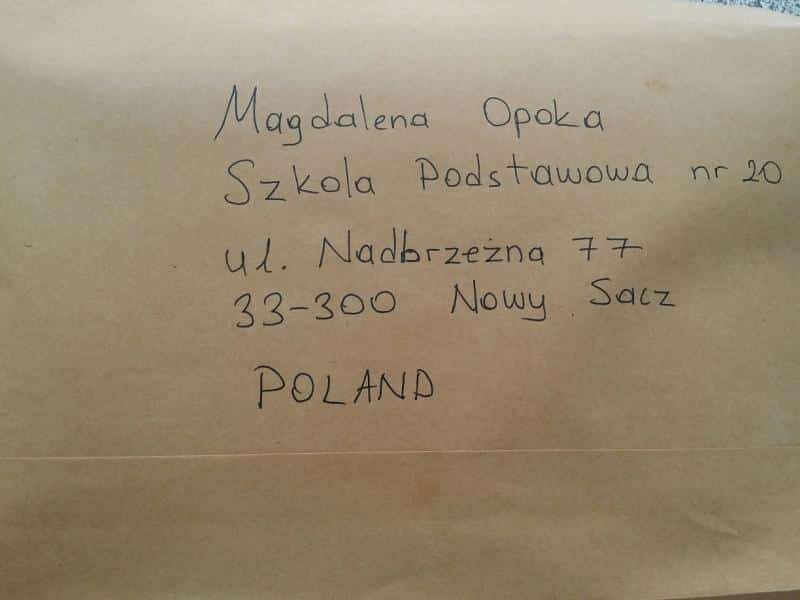 Magdalena Opoka
Szkola Podstawowa nr 20
ul. Nadbrzeżna 77
33-300 Nowy Sacz
POLAND